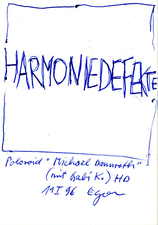 HARMONIEDEFEKTE
Polaroid "Michael
(mit Gabi K.) HD
11 I 96 Egon